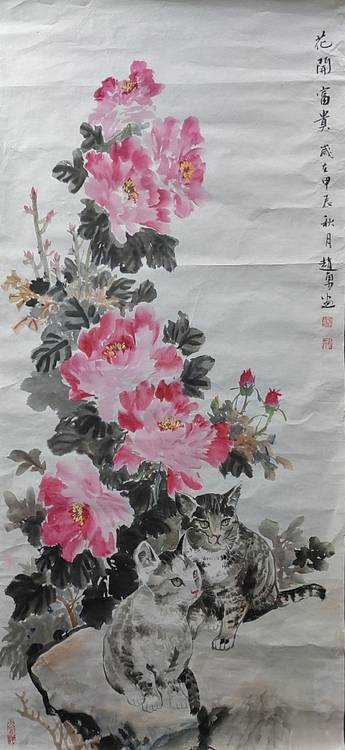 花開富貴 歲在甲辰秋月 趙勇画